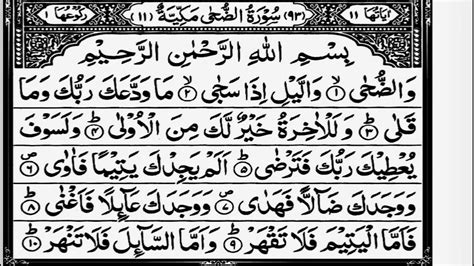 اٰيَاتُهَا ١١ (٩٣) سُوْرَةُ الضُّحٰى مَكِّيَّةٌ (١١) رُكُوْعُهَا ١
بِسْمِ اللّٰهِ الرَّحْمٰنِ الرَّحِيْمِ
وَالضُّحٰى ۙ‏﴿۱﴾ وَالَّيْلِ اِذَا سَجٰى ۙ‏﴿۲﴾ مَا وَدَّعَكَ رَبُّكَ وَمَا
قَلٰى ؕ‏﴿۳﴾ وَلَلْاٰخِرَةُ خَيْرٌ لَّكَ مِنَ الْاُوْلٰى ؕ‏﴿۴﴾ وَلَسَوْفَ
يُعْطِيْكَ رَبُّكَ فَتَرْضٰى ؕ‏﴿۵﴾ اَلَمْ يَجِدْكَ يَتِيْمًا فَاٰوٰى ۪‏﴿۶﴾
وَوَجَدَكَ ضَآلًّا فَهَدٰى ۪‏﴿۷﴾ وَوَجَدَكَ عَآئِلًا فَاَغْنٰى ؕ‏﴿۸﴾
فَاَمَّا الْيَتِيْمَ فَلَا تَقْهَرْ ؕ‏﴿۹﴾ وَاَمَّا السَّآئِلَ فَلَا تَنْهَرْ ؕ‏﴿۱۰﴾